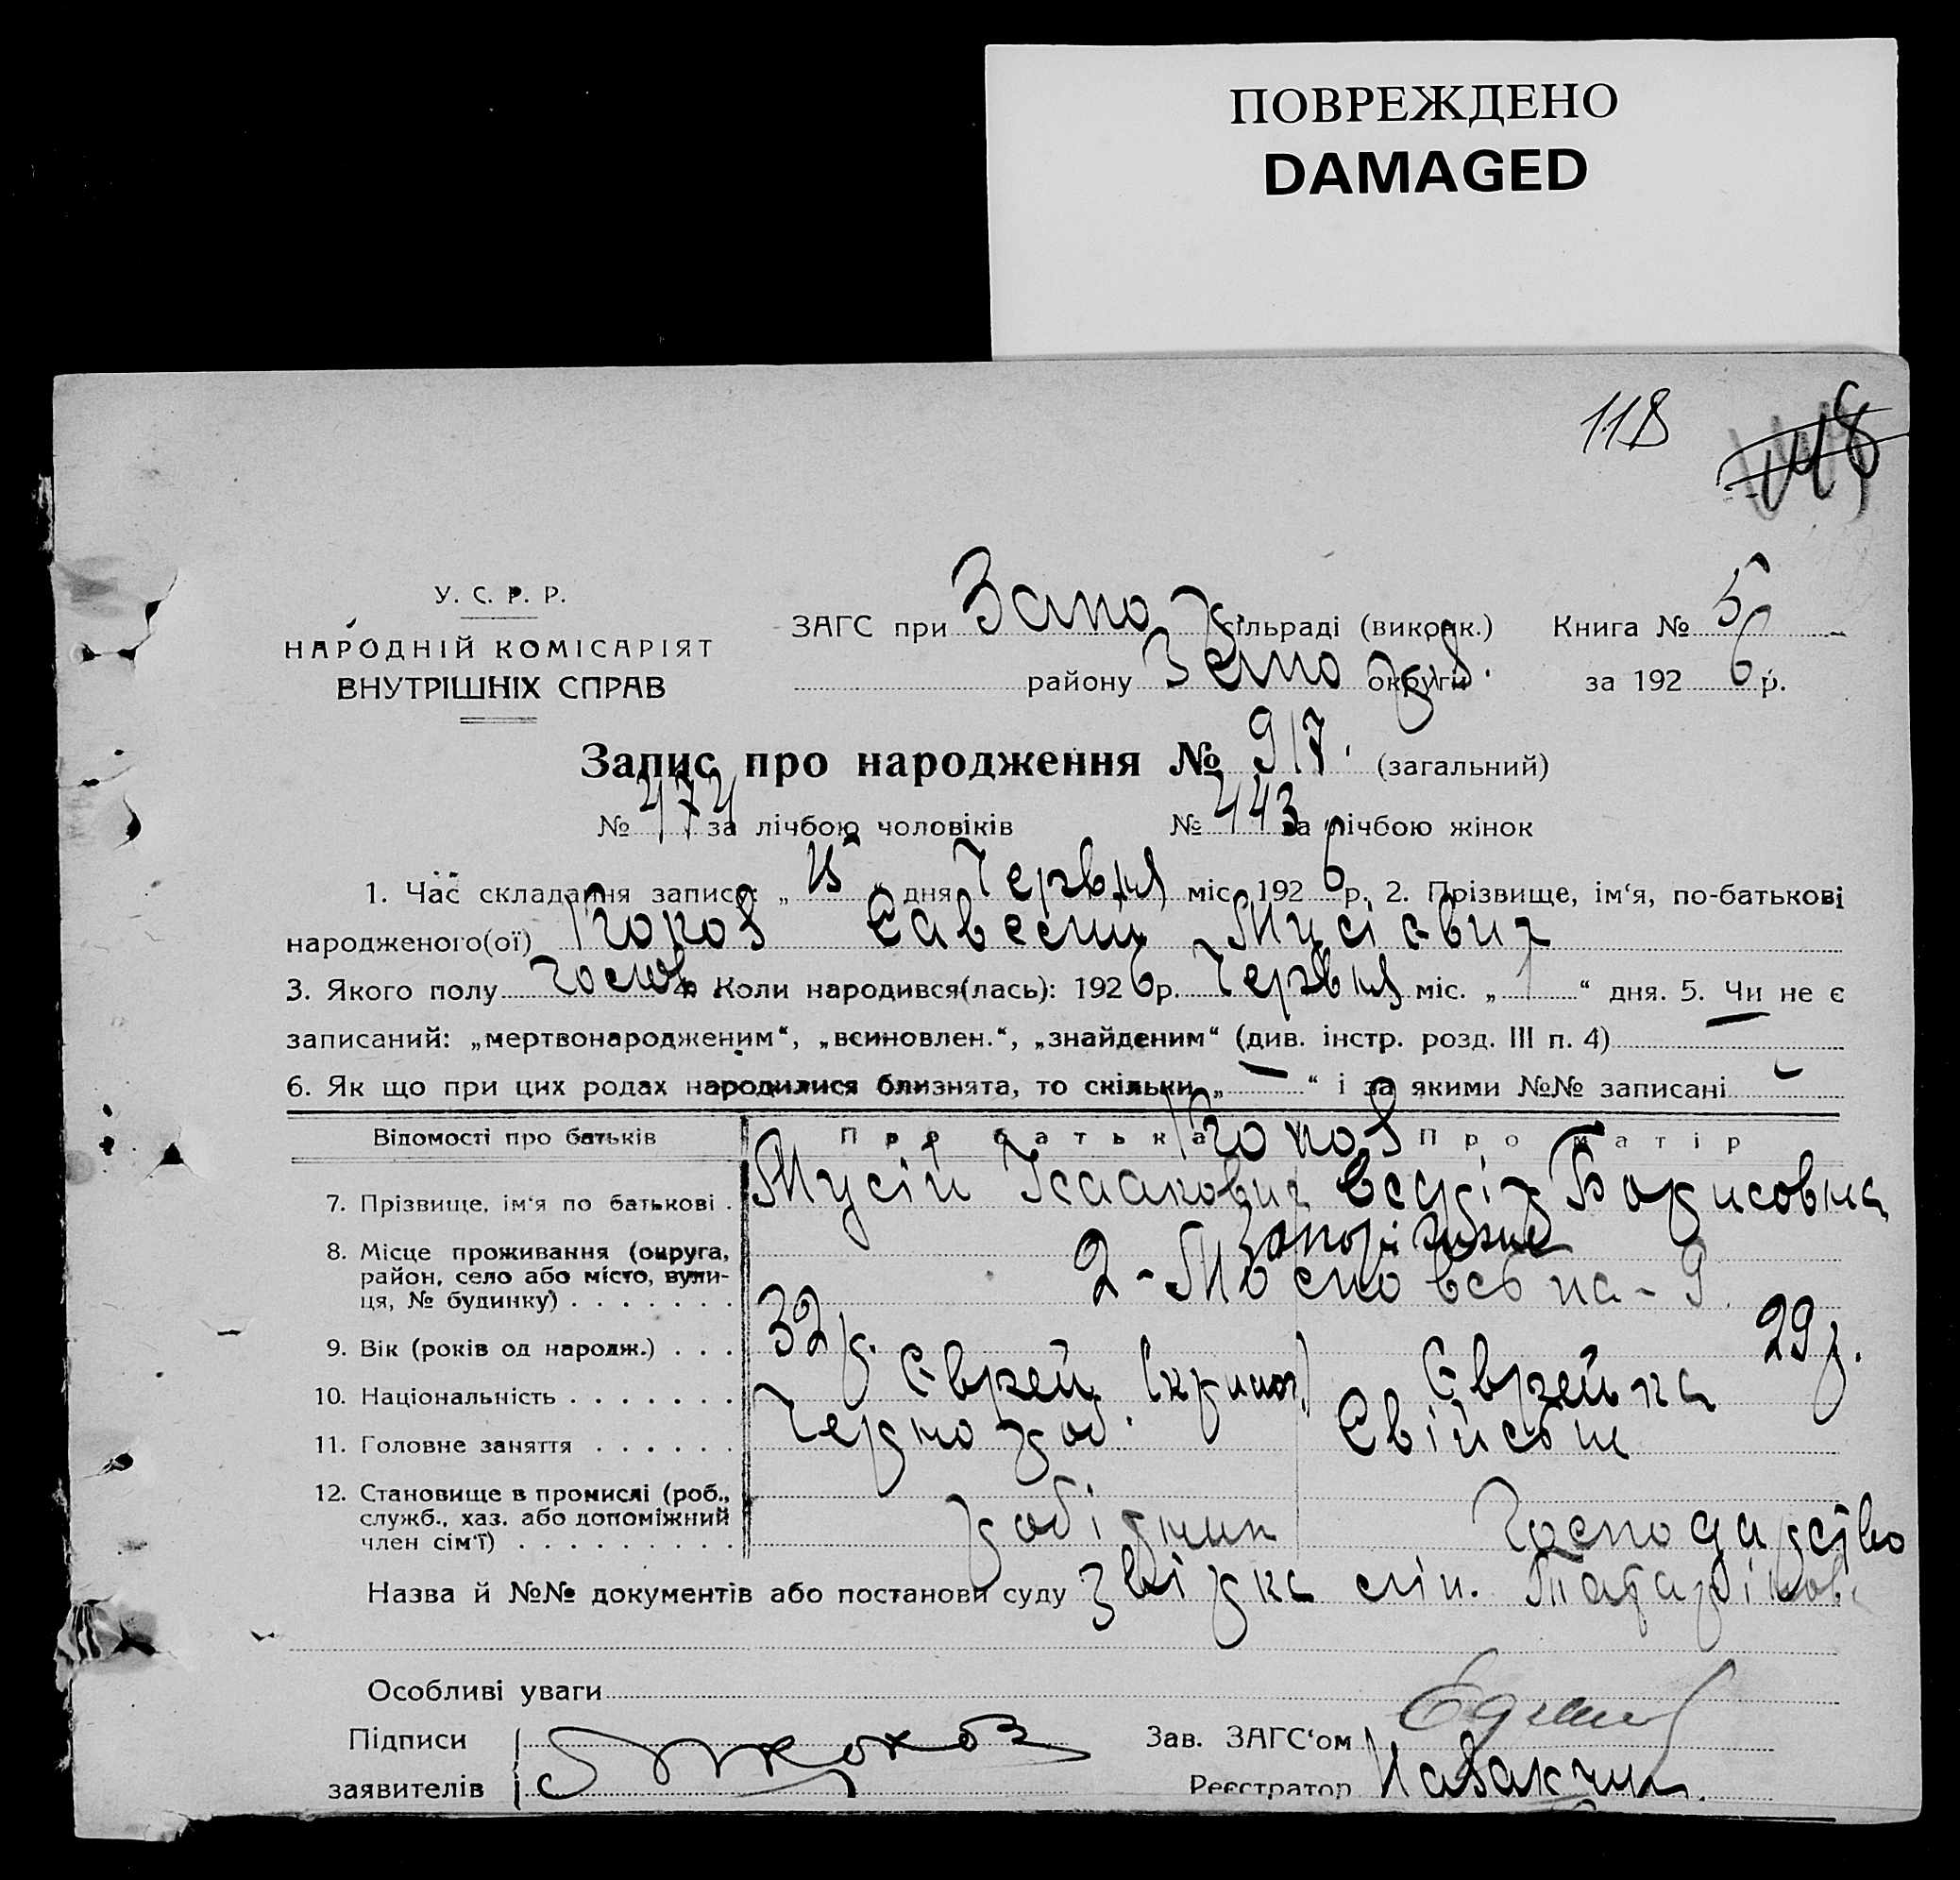 ПОВРЕЖДЕНО
DAMAGED
118
У. С. Р. Р.
НАРОДНІЙ КОМІСАРІЯТ
ВНУТРІШНІХ СПРАВ
ЗАГС при Запо сільраді (викорк.) Книга № 5
району Запо округи за 1926 р.
Запис про народження № 917. (загальний)
№ 474 за лічбою чоловіків № 443 за лічбою жінок
1. Час складання запису: „15“ дня Червня міс. 1926 р. 2. Прізвище, ім‘я, по-батькові
народженого(ої) Савелій Мусієвич
3. Якого полу чолов. 4. Коли народився(лась): 1926 р. Червня міс. „1“ дня. 5. Чи не є
записаний: „мертвонародженим“, „всиновлен.“, „знайденим“ (див. інстр. розд. III п. 4)
6. Як що при цих родах народилися близнята, то скільки „—“ і за якими №№ записані
Відомості про батьків Про батька Про матір
7. Прізвище, ім‘я по батькові . Мусій Ісаакович Борисовна
8. Місце проживання (округа, Запоріжжє
район, село або місто, вули- 2-Московська-9
ця, № будинку) . . . . . . .
9. Вік (років од народж.) . . . 32 р. 29 р.
10. Національність . . . . . . . Єврей Єврейка
11. Головне заняття . . . . . . Чорнороб. Свійське
12. Становище в промислі (роб.,
служб., хаз. або допоміжний робідник Господарство
член сім‘ї) . . . . . . . . .
Назва й №№ документів або постанови суду
Особливі уваги
Підписи Зав. ЗАГС‘ом
заявителів Реєстратор